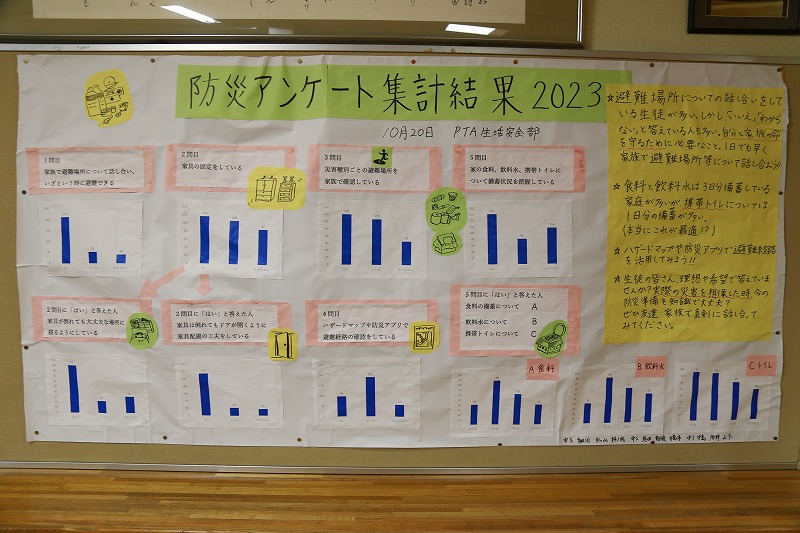 防災アンケート集計結果 2023
10月20日 PTA生活安全部
1問目
家族で避難場所について話し合い、
いざという時に避難できる
2問目
家具の固定をしている
3問目
災害種別ごとの避難場所を
家族で確認している
5問目
家の食料、飲料水、携帯トイレに
ついて備蓄状況を把握している
2問目に「はい」と答えた人
家具が倒れても大丈夫な場所に
寝るようにしている
2問目に「はい」と答えた人
家具は倒れてもドアが開くように
家具配置の工夫をしている
4問目
ハザードマップや防災アプリで
避難経路の確認をしている
5問目に「はい」と答えた人
食料の備蓄について A
飲料水について B
携帯トイレについて C
A 食料
B 飲料水
C トイレ
☆避難場所についての話し合いをし
ている生徒が多い。しかし、「いいえ」「わから
ない」と答えている人も多い。自分と家族の命
を守るために必要なこと。1日でも早く
家族で避難場所等について話し合おう!
☆食料と飲料水は3日分備蓄している
家庭が多いが携帯トイレについては
1日分の備蓄が多い。
(本当にこれが最適!?)
☆ハザードマップや防災アプリで避難経路
を活用してみよう!!
☆生徒の皆さん、理想や希望で答えていま
せんか?実際の災害を想像した時、今の
防災準備と知識で大丈夫?
ぜひ友達、家族で真剣に話し合って
みてください。